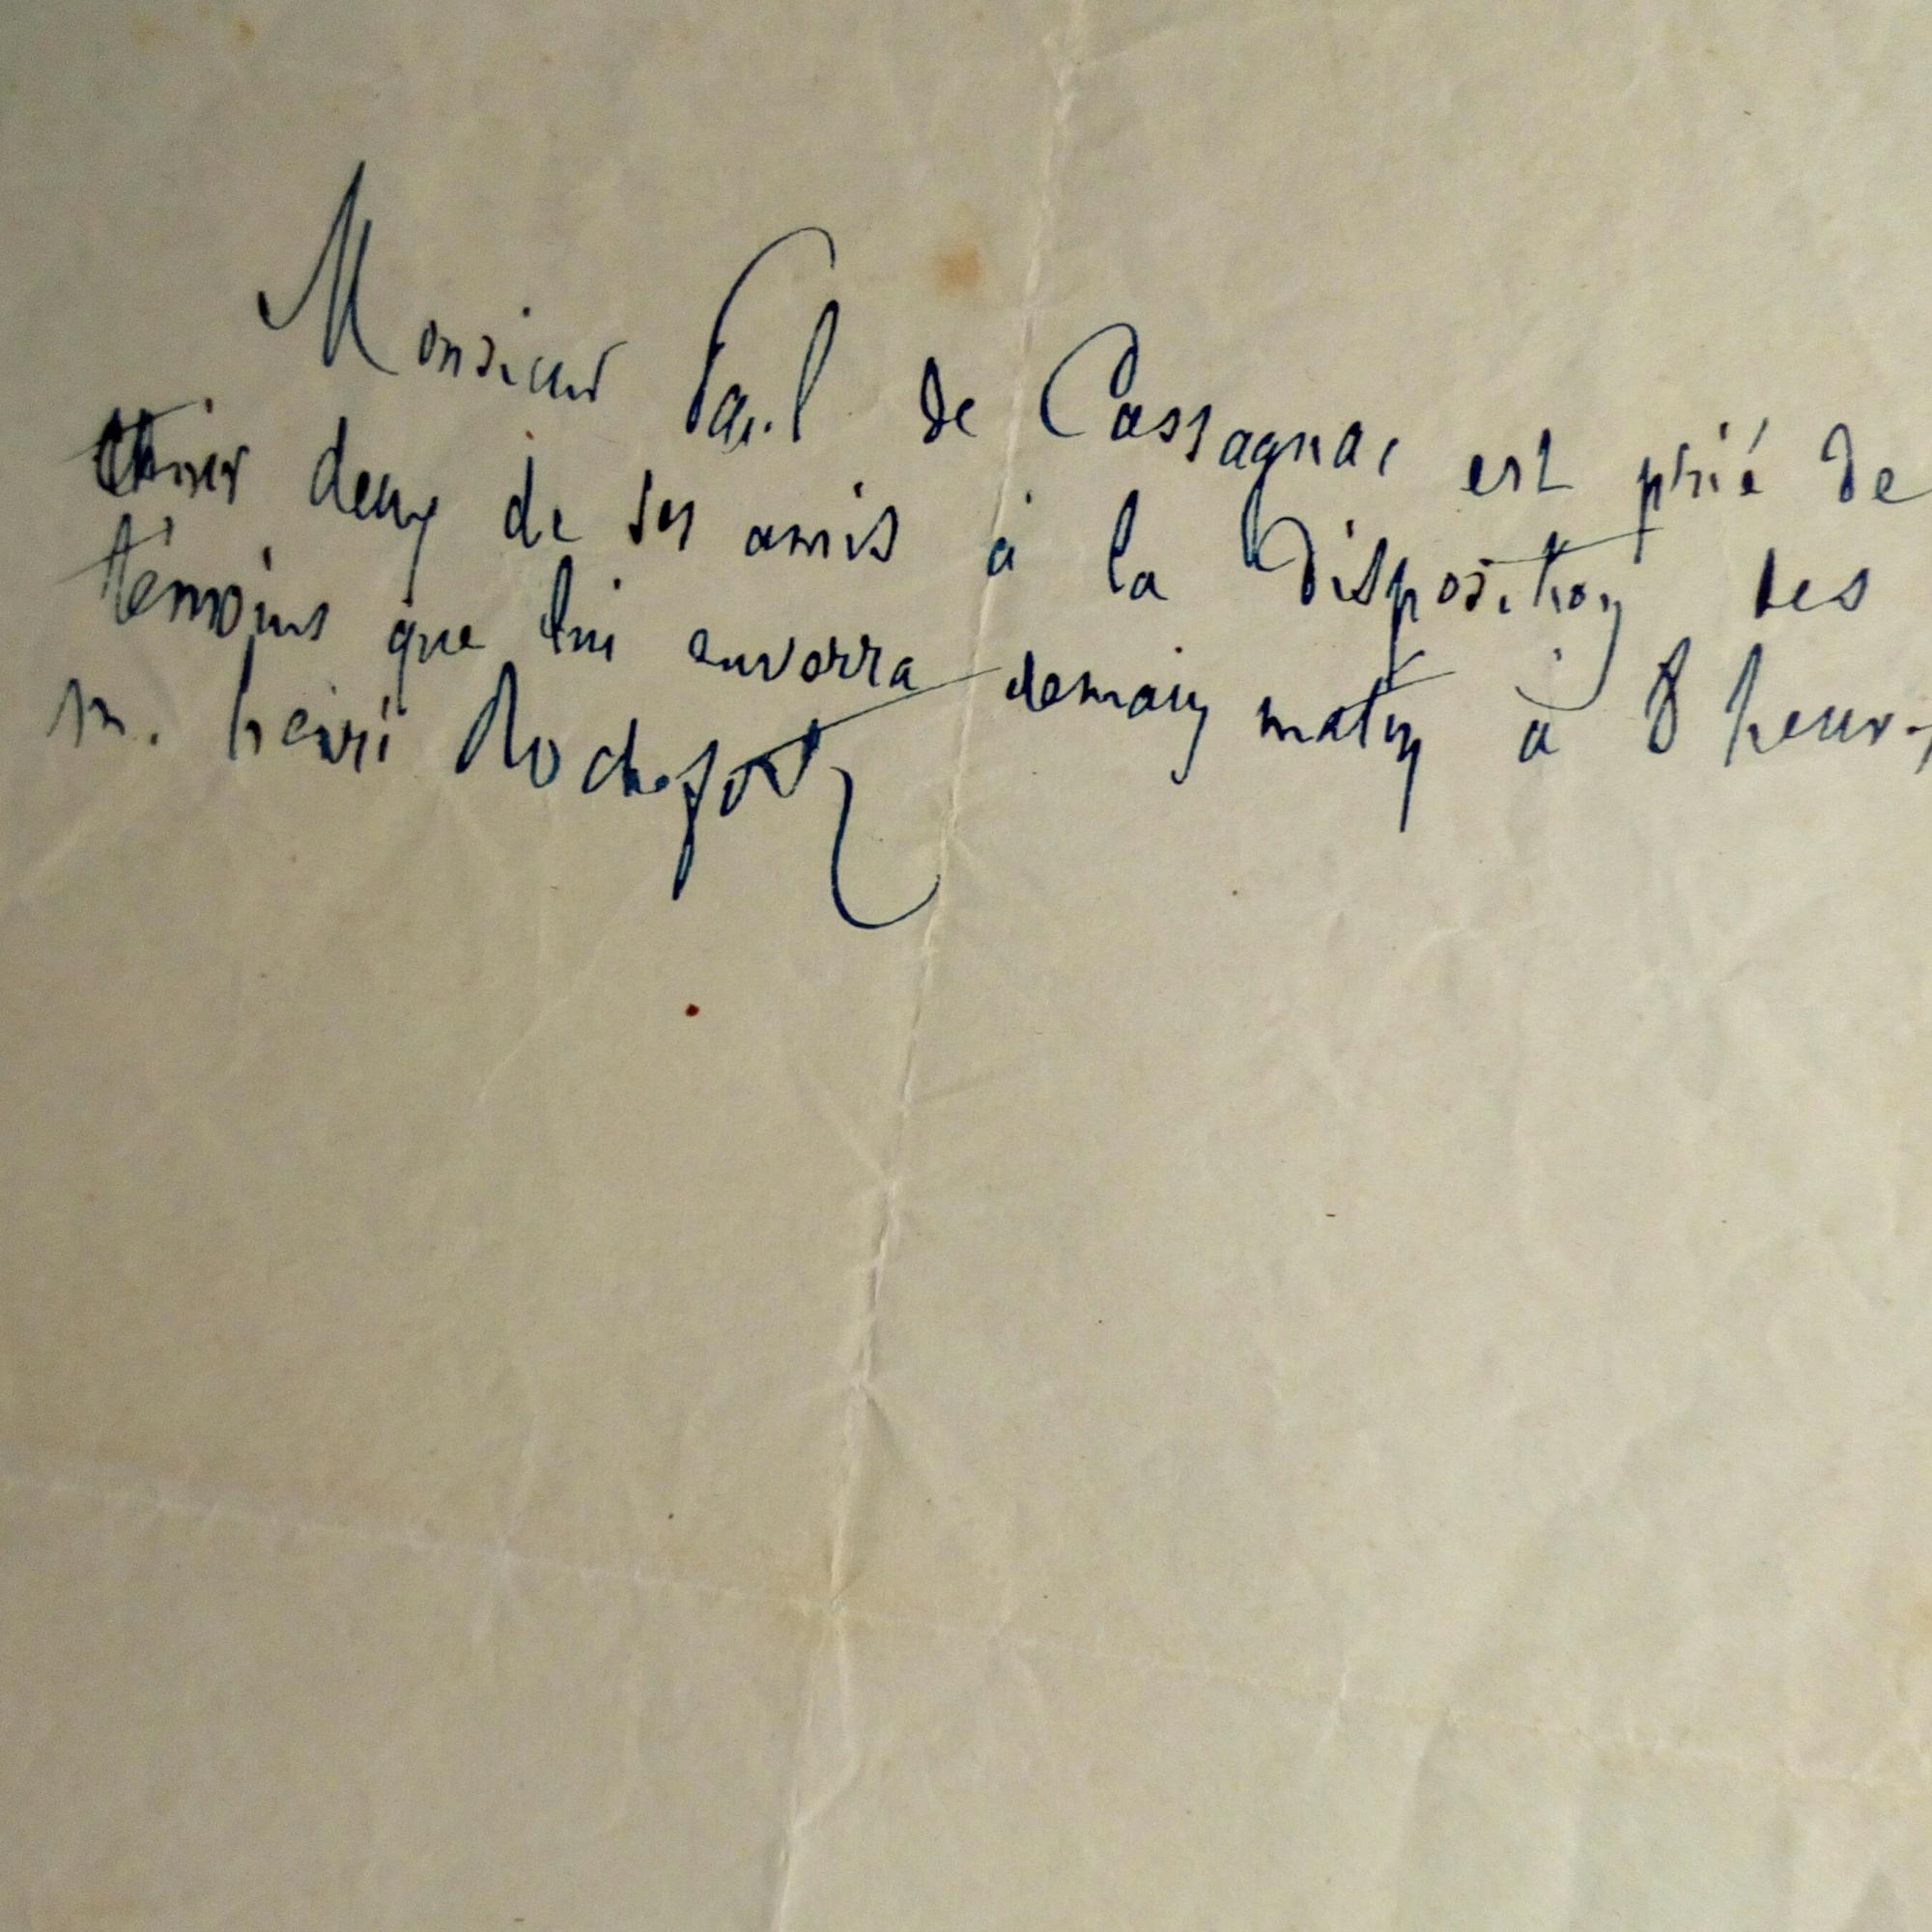 Monsieur Paul de Cassagnac est prié de
tenir deux de ses amis à la disposition des
témoins que lui enverra demain matin à 8 heures
m. henri Rochefort